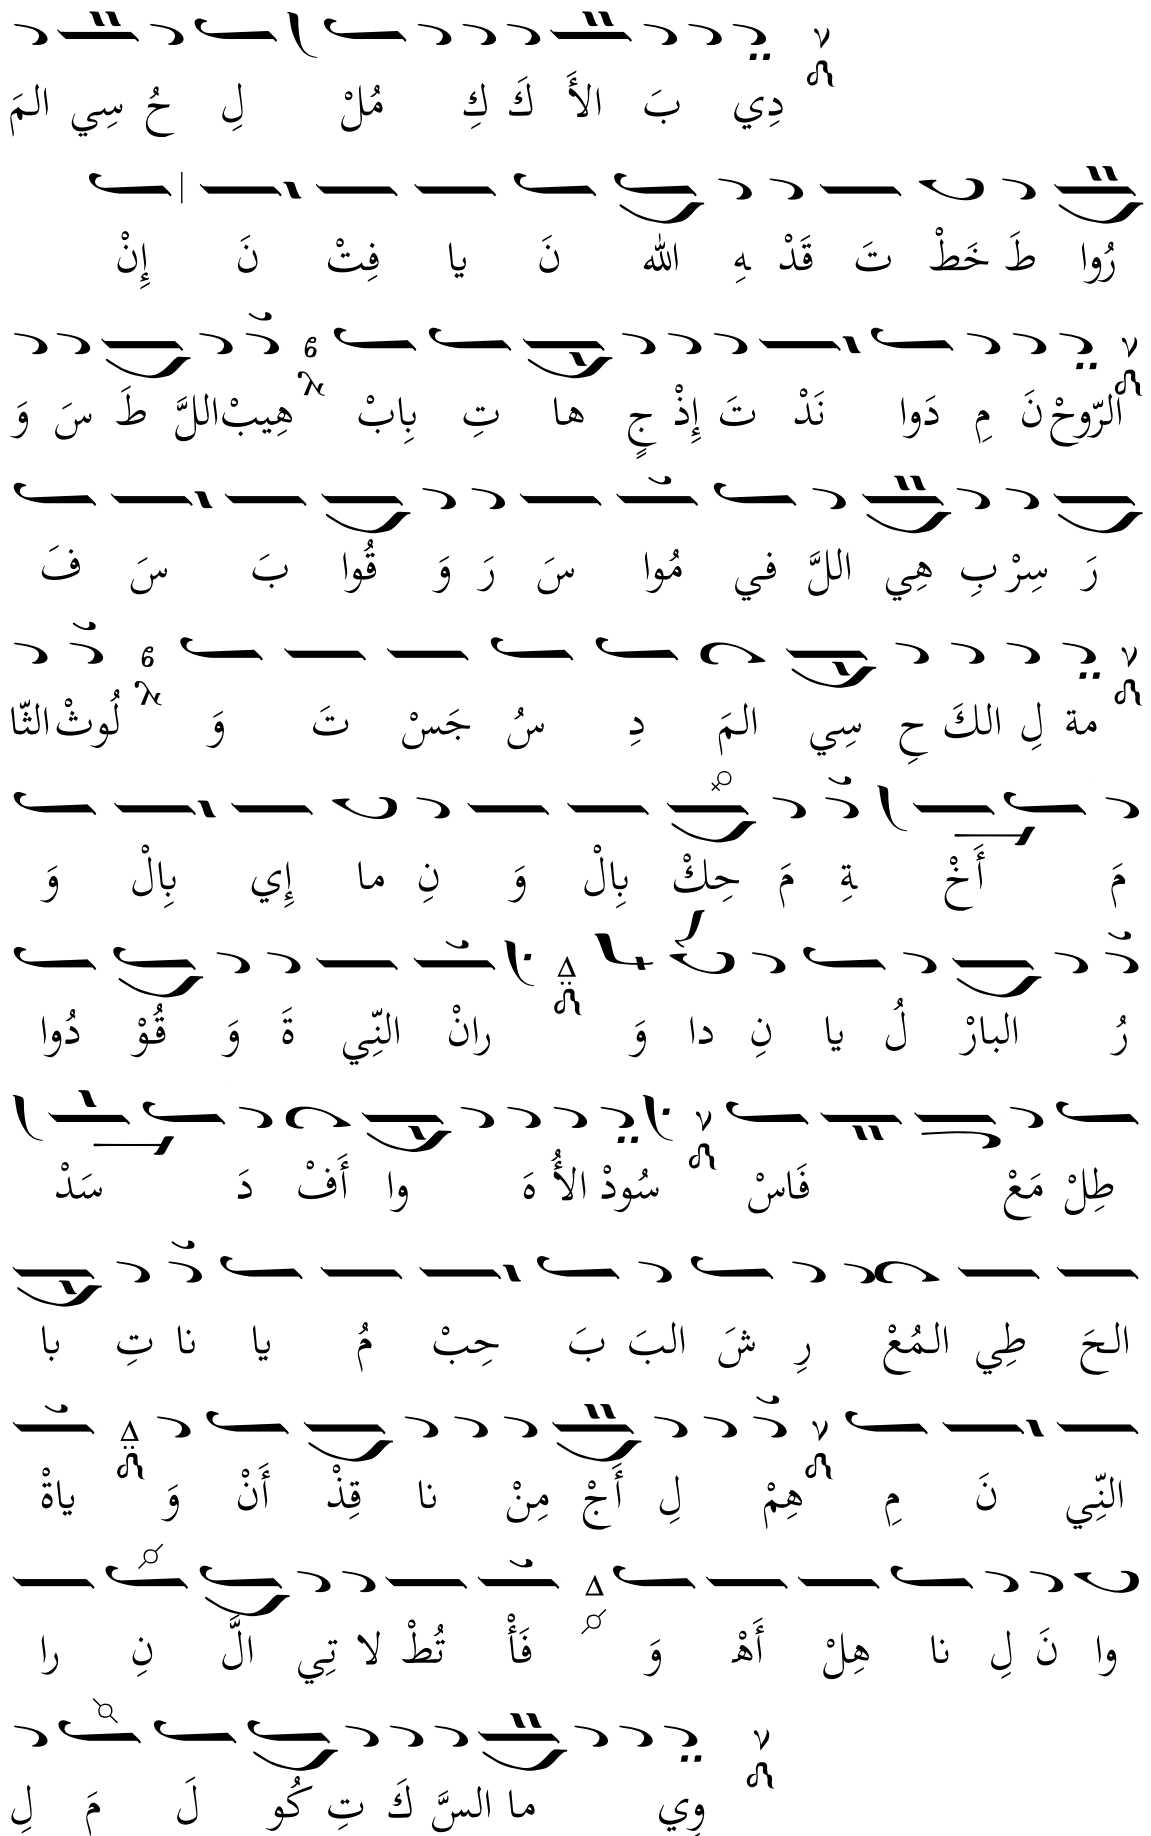 المَ سِي حُ لِ مُلْ كِ كَ الأَ بَ دِي
إِنْ نَ فِتْ يا نَ الله هِ قَدْ تَ خَطْ طَ رُوا
وَ سَ طَ اللَّ هِيبْ بِابْ تِ ها جٍ إِذْ تَ نَدْ دَوا مِ نَ الرّوحْ
فَ سَ بَ قُوا وَ رَ سَ مُوا في اللَّ هِي بِ سِرْ رَ
الثّا لُوثْ وَ تَ جَسْ سُ دِ المَ سِي حِ الكَ لِ مة
وَ بِالْ إِي ما نِ وَ بِالْ حِكْ مَ ةِ أَخْ مَ
دُوا قُوْ وَ ةَ النِّي رانْ وَ دا نِ يا لُ البارْ رُ
سَدْ دَ أَفْ وا هَ الأُ سُودْ فَاسْ مَعْ طِلْ
با تِ نا يا مُ حِبْ بَ البَ شَ رِ المُعْ طِي الحَ
ياةْ وَ أَنْ قِذْ نا مِنْ أَجْ لِ هِمْ مِ نَ النِّي
را نِ الَّ تِي لا تُطْ فَأْ وَ أَهْ هِلْ نا لِ نَ وا
لِ مَ لَ كُو تِ كَ السَّ ما وِي